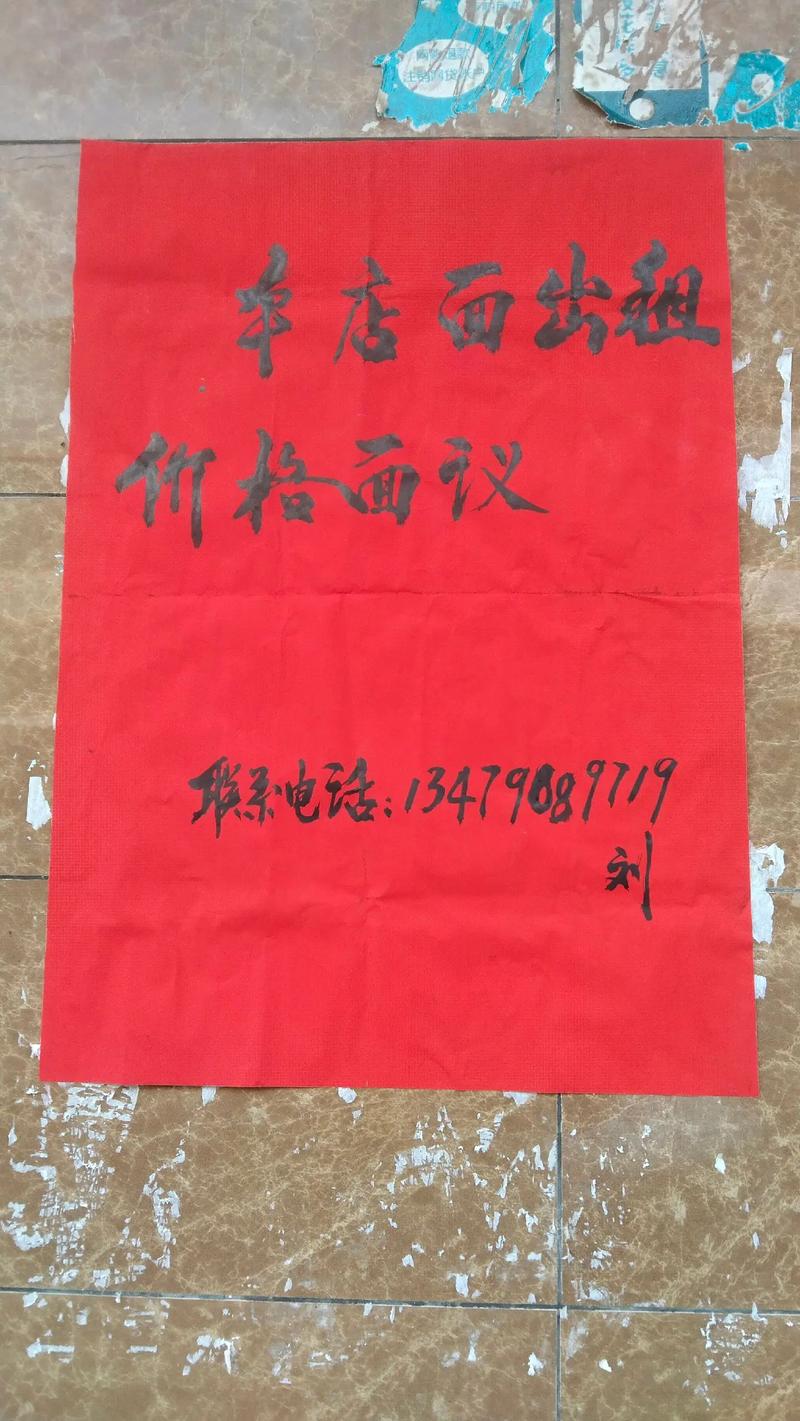 注销网贷
本店面出租
价格面议
联系电话:13479089719
刘